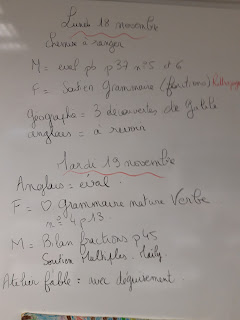 Lundi 18 novembre
chemise à ranger
M = eval pb p 37 n°5 et 6
F = Soutien Grammaire (fonctions)
Géographe = 3 découvertes de
anglais = à revoir
Mardi 19 novembre
Anglais = éval.
F = ♡ grammaire nature Verbe
n°4 p 13.
M = Bilan fractions p 45
Soutien Multiples.
Atelier fable = mer déguisement.